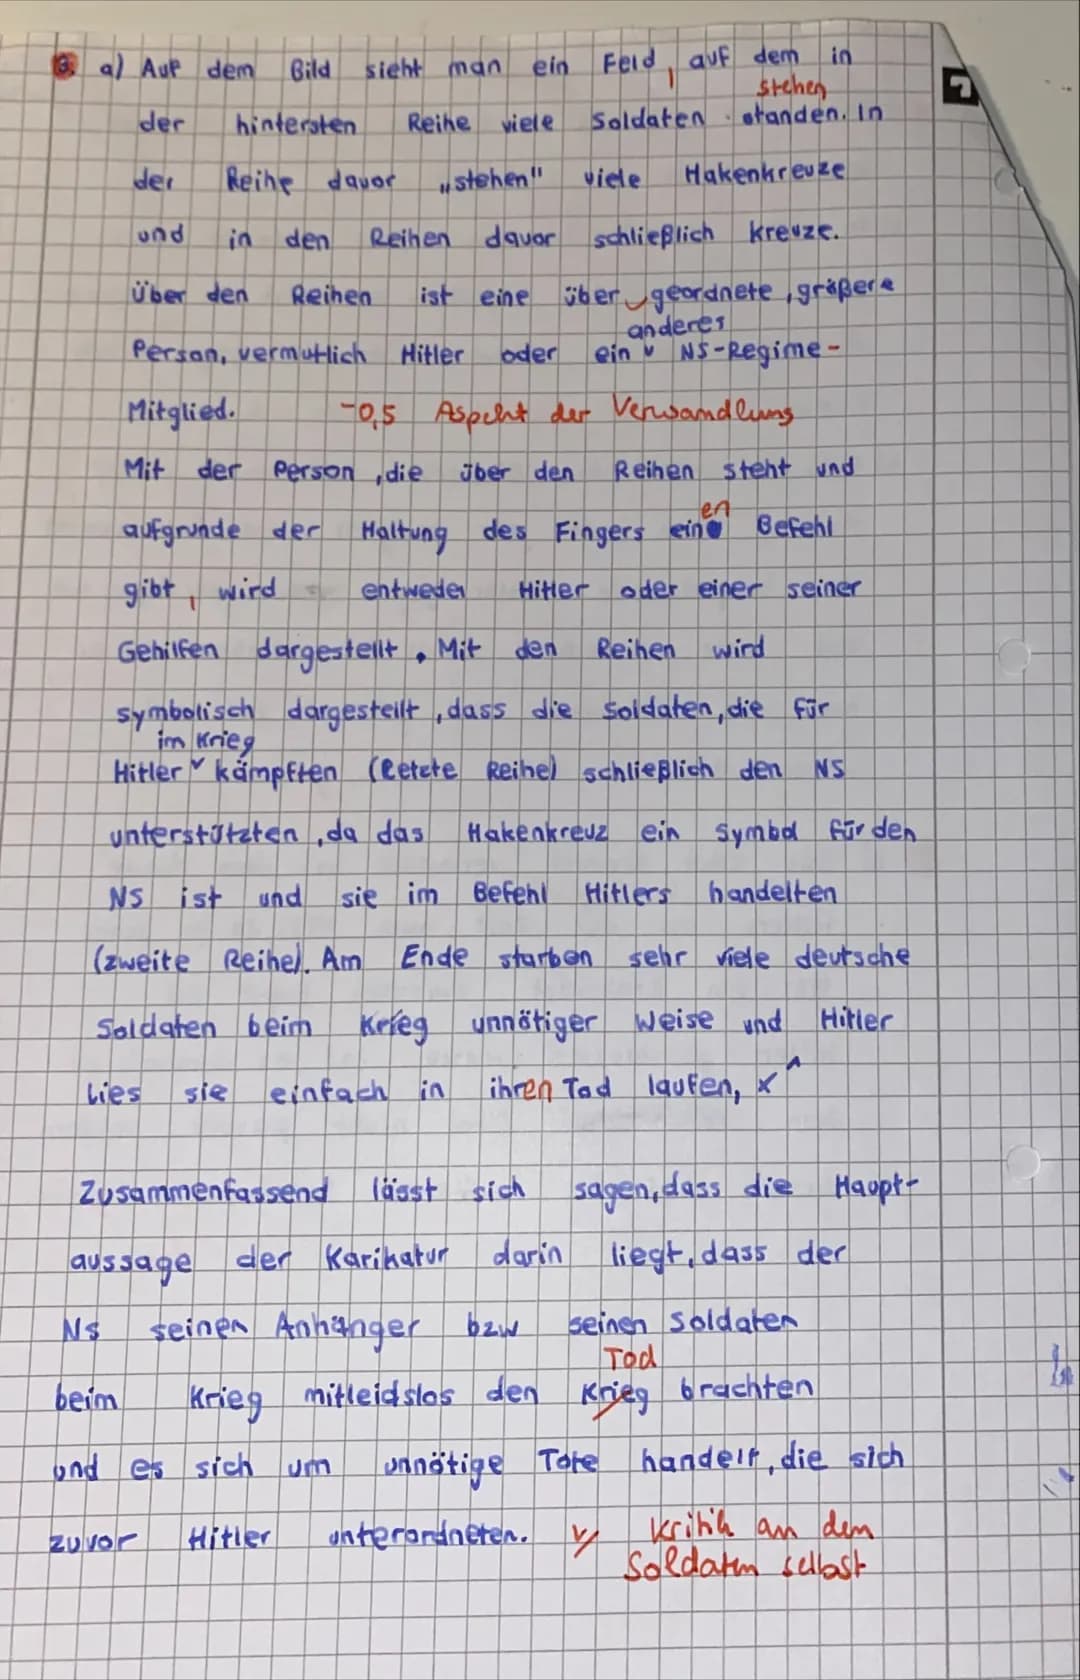 3. a) Auf dem Bild sieht man ein Feld, auf dem in
stehen
der hintersten Reihe viele Soldaten standen. In
der Reihe davor „stehen" viele Hakenkreuze
und in den Reihen davor schließlich Kreuze.
Über den Reihen ist eine über geordnete, größere
anderes
Person, vermutlich Hitler oder ein v NS-Regime-
Mitglied. -0,5 Aspekt der Verwandlung
Mit der Person, die über den Reihen steht und
en
aufgrunde der Haltung des Fingers ein Befehl
gibt, wird entweder Hitler oder einer seiner
Gehilfen dargestellt. Mit den Reihen wird
symbolisch dargestellt, dass die Soldaten, die für
im Krieg
Hitler v kämpften (letzte Reihe) schließlich den NS
unterstützten, da das Hakenkreuz ein Symbol für den
NS ist und sie im Befehl Hitlers handelten
(zweite Reihe). Am Ende starben sehr viele deutsche
Soldaten beim Krieg unnötiger Weise und Hitler
lies sie einfach in ihren Tod laufen, x^
Zusammenfassend lässt sich sagen, dass die Haupt-
aussage der Karikatur darin liegt, dass der
NS seinen Anhänger bzw seinen Soldaten
Tod
beim Krieg mitleidslos den Krieg brachten
und es sich um unnötige Tote handelt, die sich
zuvor Hitler unterordneten. Kritik an dem
Soldaten selbst